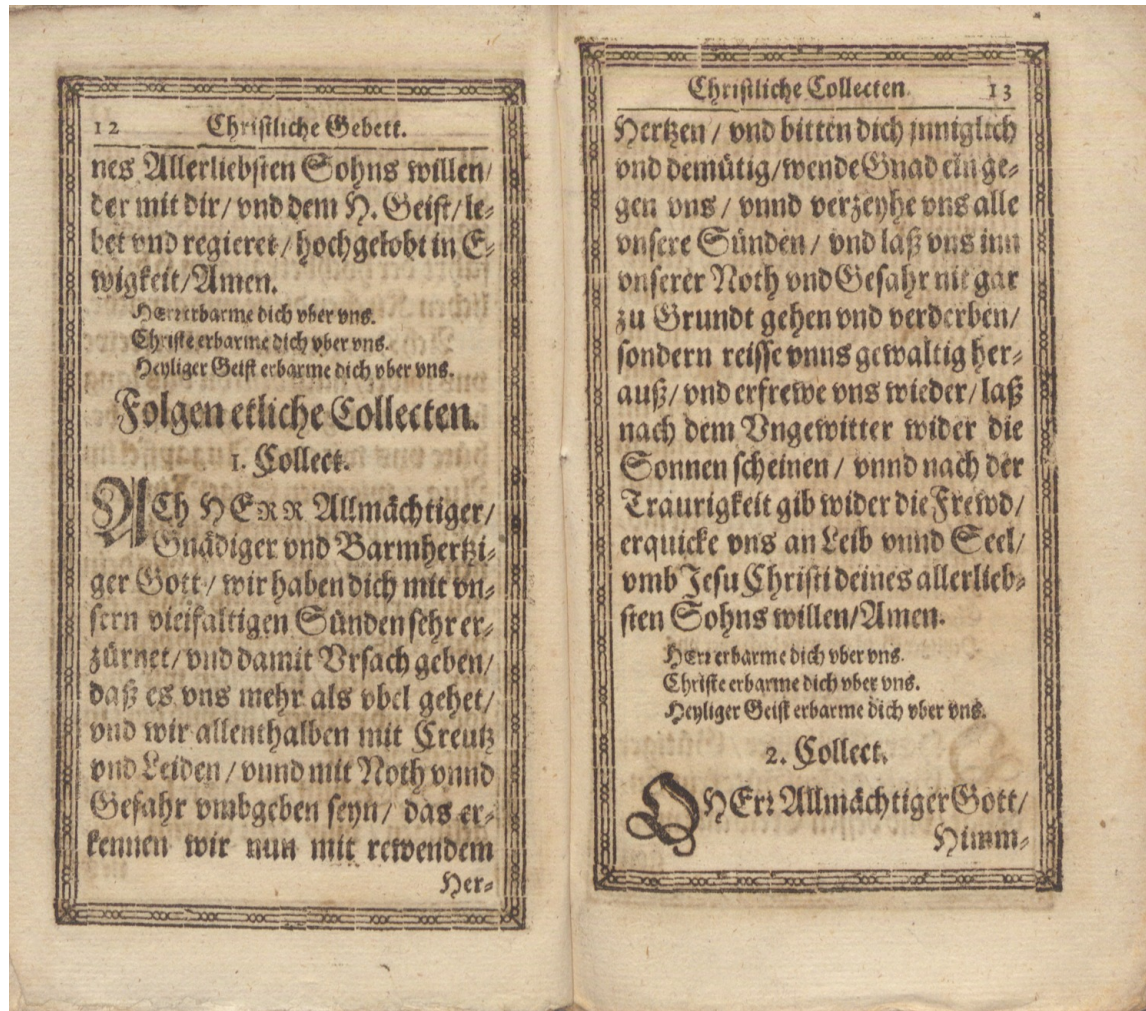 12 Christliche Gebett.
nes Allerliebsten Sohns willen/
der mit dir/ vnd dem H. Geist/ le-
bet vnd regieret/ hochgelobt in E-
wigkeit/ Amen.
HErr erbarme dich vber vns.
Christe erbarme dich vber vns.
Heyliger Geist erbarme dich vber vns.
Folgen etliche Collecten.
1. Collect.
ACh HERR Allmächtiger/
Gnädiger vnd Barmhertzi-
ger Gott/ wir haben dich mit vn-
sern vielfaltigen Sünden sehr er-
zürnet/ vnd damit Vrsach geben/
daß es vns mehr als vbel gehet/
vnd wir allenthalben mit Creutz
vnd Leiden/ vnnd mit Noth vnnd
Gefahr vmbgeben seyn/ das er-
kennen wir nun mit rewendem
Her-
Christliche Collecten 13
Hertzen/ vnd bitten dich jnniglich
vnd demütig/ wende Gnad ein ge-
gen vns/ vnnd verzeyhe vns alle
vnsere Sünden/ vnd laß vns inn
vnserer Noth vnd Gefahr nit gar
zu Grundt gehen vnd verderben/
sondern reisse vnns gewaltig her-
auß/ vnd erfrewe vns wieder/ laß
nach dem Vngewitter wider die
Sonnen scheinen/ vnnd nach der
Traurigkeit gib wider die Frewd/
erquicke vns an Leib vnnd Seel/
vmb Jesu Christi deines allerlieb-
sten Sohns willen/ Amen.
HErr erbarme dich vber vns.
Christe erbarme dich vber vns.
Heyliger Geist erbarme dich vber vns.
2. Collect.
O HErr Allmächtiger Gott/
Himm-